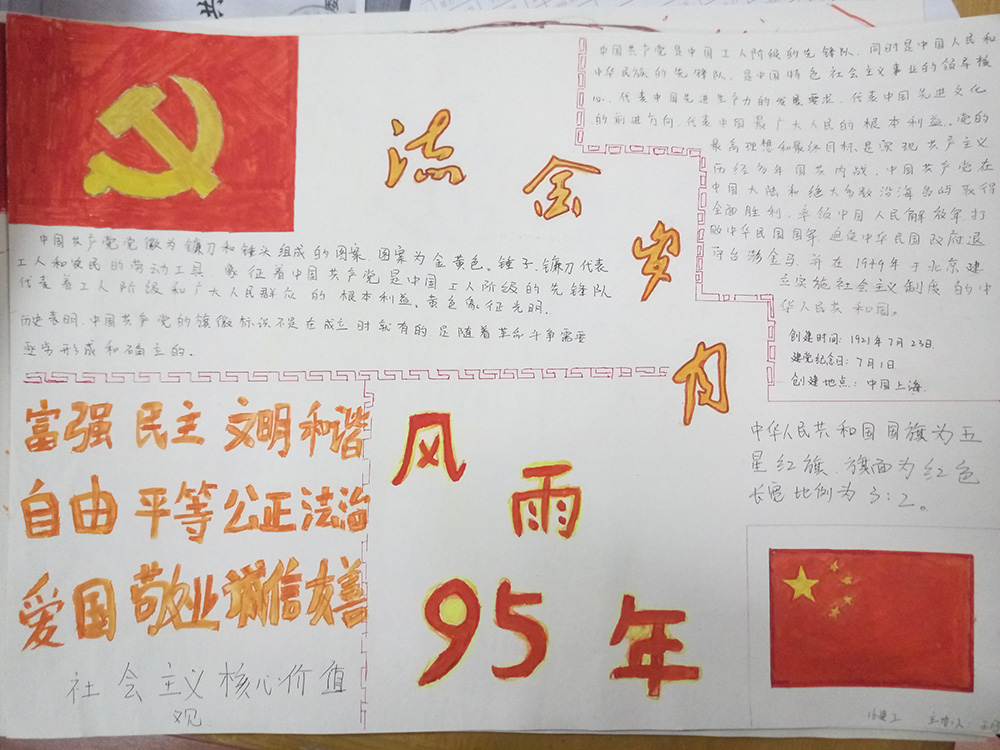 流金岁月
中国共产党是中国工人阶级的先锋队，同时是中国人民和
中华民族的先锋队，是中国特色社会主义事业的领导核
心，代表中国先进生产力的发展要求，代表中国先进文化
的前进方向，代表中国最广大人民的根本利益。党的
最高理想和最终目标是实现共产主义
历经多年国共内战，中国共产党在
中国大陆和绝大多数沿海岛屿取得
全面胜利，率领中国人民解放军打
败中华民国国军，迫使中华民国政府退
守台澎金马，并在1949年于北京建
立实施社会主义制度的中
华人民共和国。
创建时间：1921年7月23日
建党纪念日：7月1日
创建地点：中国上海.
中国共产党党徽为镰刀和锤头组成的图案，图案为金黄色。锤子、镰刀代表
工人和农民的劳动工具，象征着中国共产党是中国工人阶级的先锋队
代表着工人阶级和广大人民群众的根本利益。黄色象征光明.
历史表明，中国共产党的旗徽标识不是在成立时就有的是随着革命斗争需要
逐步形成和确立的.
富强 民主 文明 和谐
自由 平等 公正 法治
爱国 敬业 诚信 友善
社会主义核心价值
观
风雨95年
中华人民共和国国旗为五
星红旗，旗面为红色
长宽比例为3:2。
主办人：